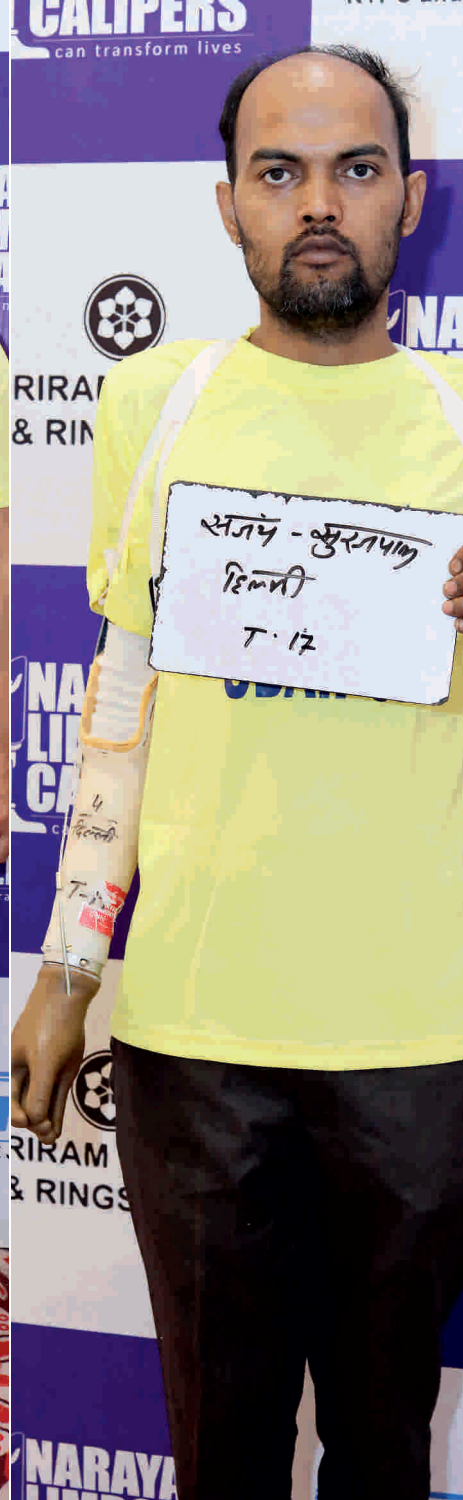 CALIPERS
can transform lives
NA
RIRAM
& RIN
संजय - सुरजपाल
दिल्ली
T. 17
NA
LI
CA
4
दिल्ली
RIRAM
& RINGS
NARAYA
LIMB